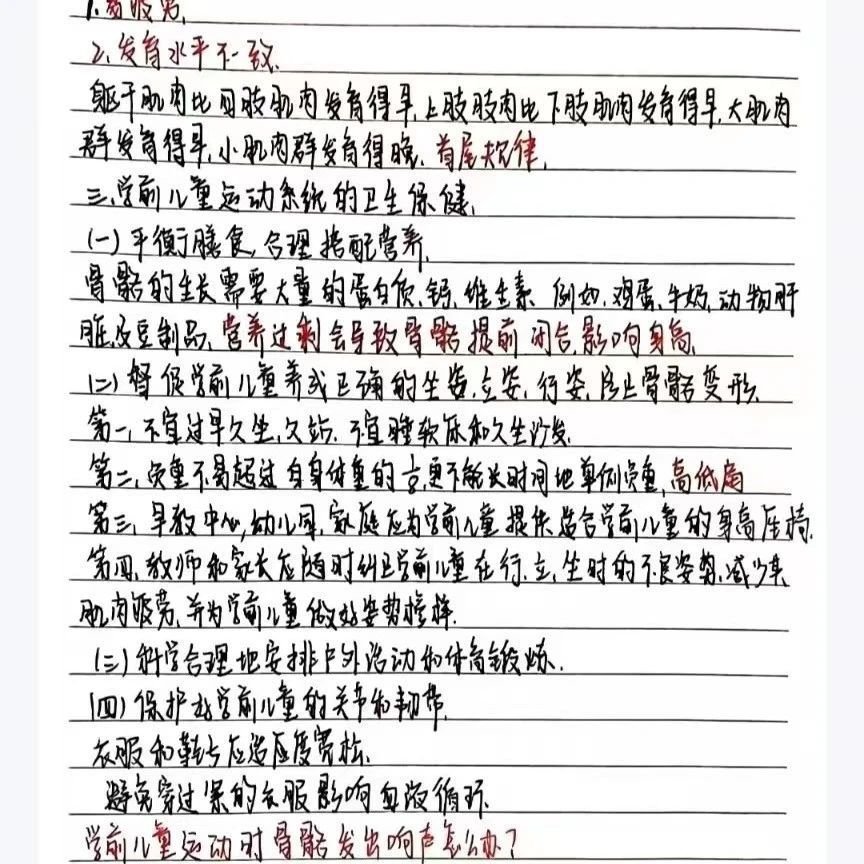 1.易疲劳.
2.发育水平不一致.
躯干肌肉比四肢肌肉发育得早,上肢肢肉比下肢肌肉发育得早,大肌肉
群发育得早,小肌肉群发育得晚.首尾规律.
三.学前儿童运动系统的卫生保健.
(一)平衡膳食,合理搭配营养.
骨骼的生长需要大量的蛋白质,钙,维生素.例如,鸡蛋,牛奶,动物肝
脏及豆制品.营养过剩会导致骨骼提前闭合,影响身高.
(二)督促学前儿童养成正确的坐姿,立姿,行姿,防止骨骼变形.
第一,不宜过早久坐,久站.不宜睡软床和久坐沙发.
第二,负重不易超过自身体重的,更不能长时间地单侧负重,高低肩
第三,早教中心,幼儿园,家庭应为学前儿童提供适合学前儿童的身高座椅.
第四,教师和家长应随时纠正学前儿童在行,立,坐时的不良姿势,减少其
肌肉疲劳,并为学前儿童做好姿势榜样.
(三)科学合理地安排户外活动和体育锻炼.
(四)保护好学前儿童的关节和韧带.
衣服和鞋应适度宽松.
避免穿过紧的衣服影响血液循环.
学前儿童运动时骨骼发出响声怎么办?